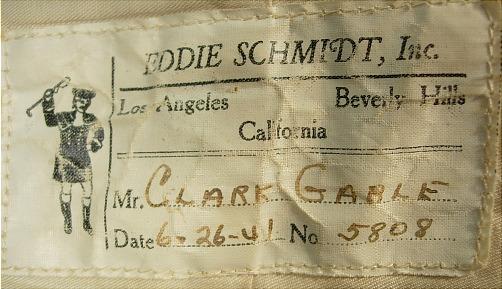 EDDIE SCHMIDT, Inc.
Los Angeles Beverly Hills
California
Mr. CLARK GABLE
Date 6-26-41 No 5808